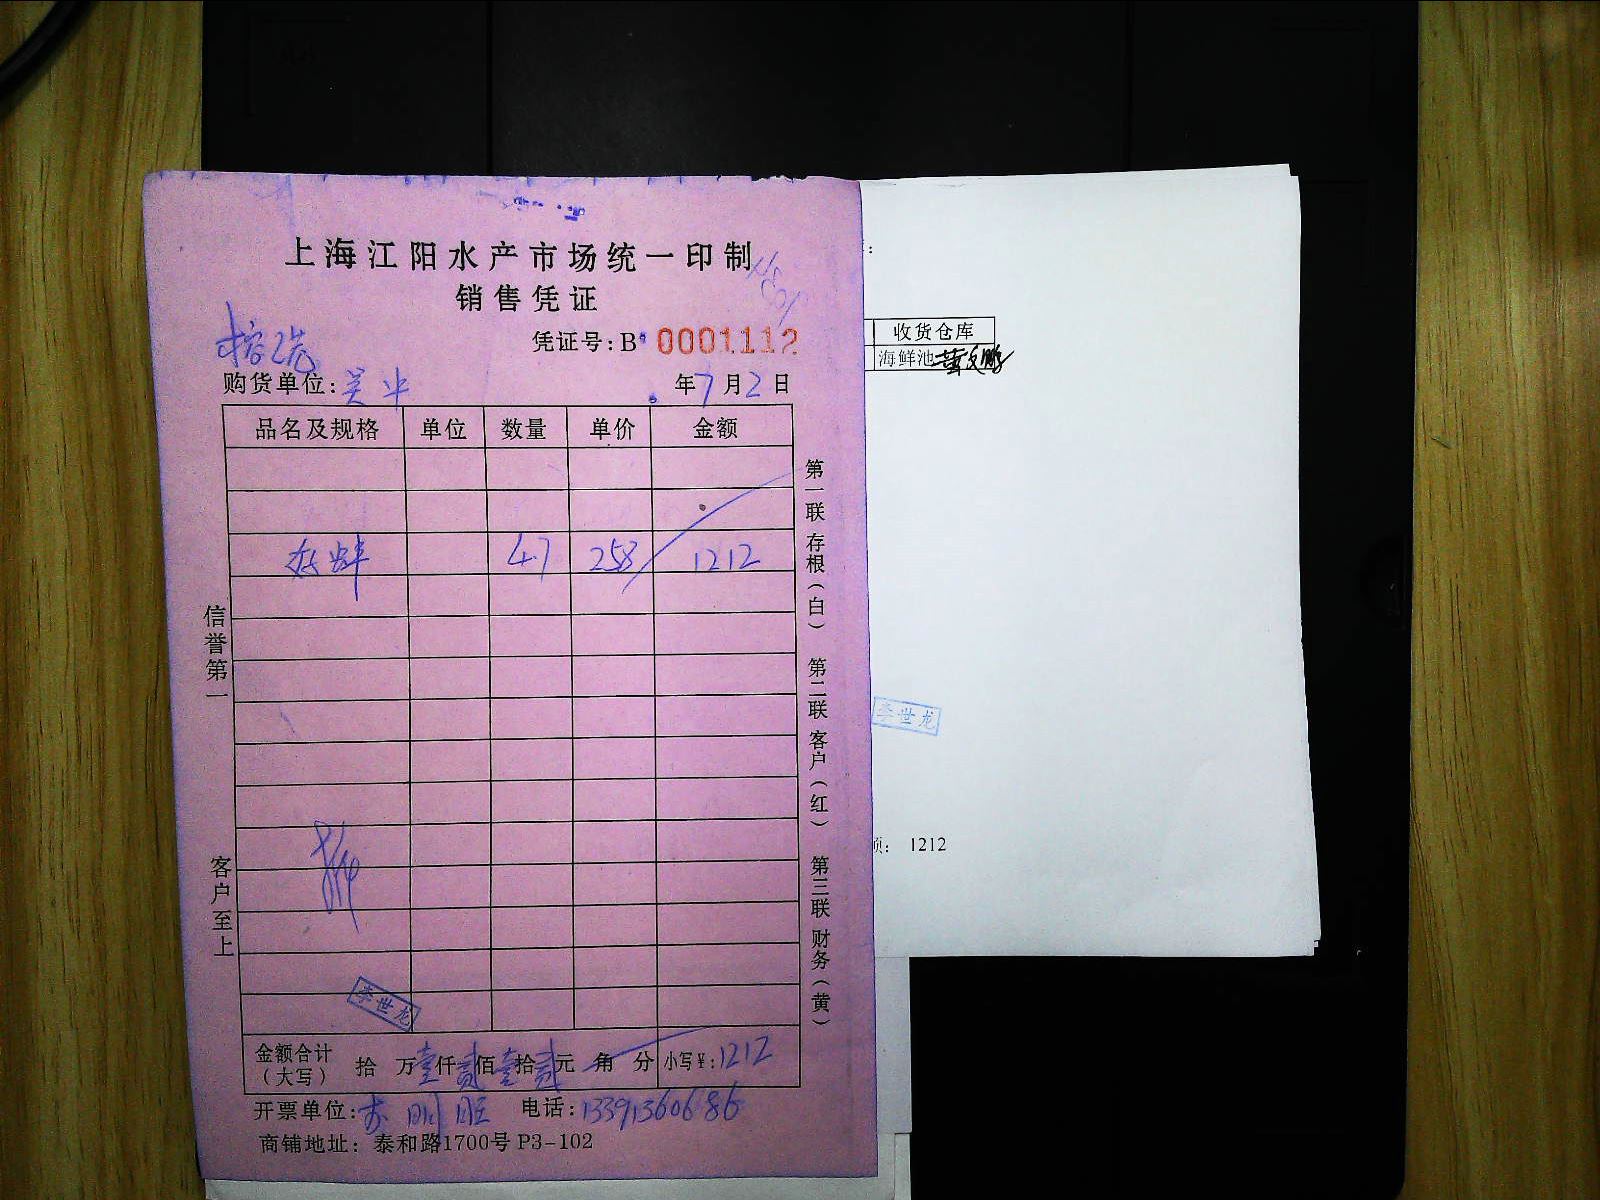 上海江阳水产市场统一印制
销售凭证
凭证号:B 0001112
购货单位:吴中
年7月2日
品名及规格 单位 数量 单价 金额
蚌 4.7 258 1212
信誉第一
客户至上
第一联 存根(白) 第二联 客户(红) 第三联 财务(黄)
李世龙
金额合计(大写) 拾 万壹仟贰佰壹拾贰元 角 分 小写¥:1212
开票单位: 电话:13391360686
商铺地址: 泰和路1700号 P3-102
收货仓库
海鲜池
李世龙
1212